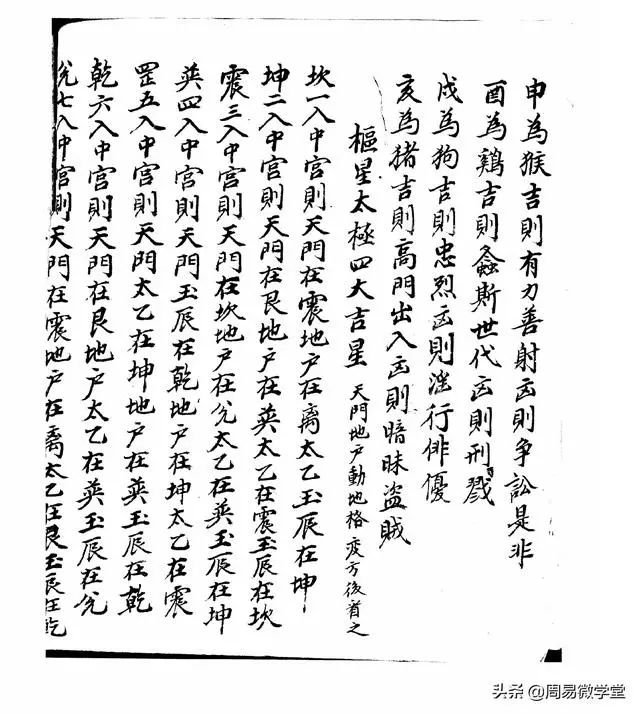 申為猴吉則有力善射凶則争訟是非
酉為鷄吉則螽斯世代凶則刑戮
戌為狗吉則忠烈凶則滛行俳優
亥為猪吉則高門出入凶則暗昧盗賊
樞星太極四大吉星 天門地户動地格 後首之
坎一入中宫則天門在震地户在离太乙玉辰在坤
坤二入中宫則天門在艮地户在英太乙在震玉辰在坎
震三入中宫則天門在坎地户在兊太乙在英玉辰在坤
英四入中宫則天門玉辰在乾地户在坤太乙在震
罡五入中宫則天門太乙在坤地户在英玉辰在乾
乾六入中宫則天門在艮地户太乙在英玉辰在兊
兊七入中宫則天門在震地户在离太乙在艮玉辰在乾
头条 @周易微学堂